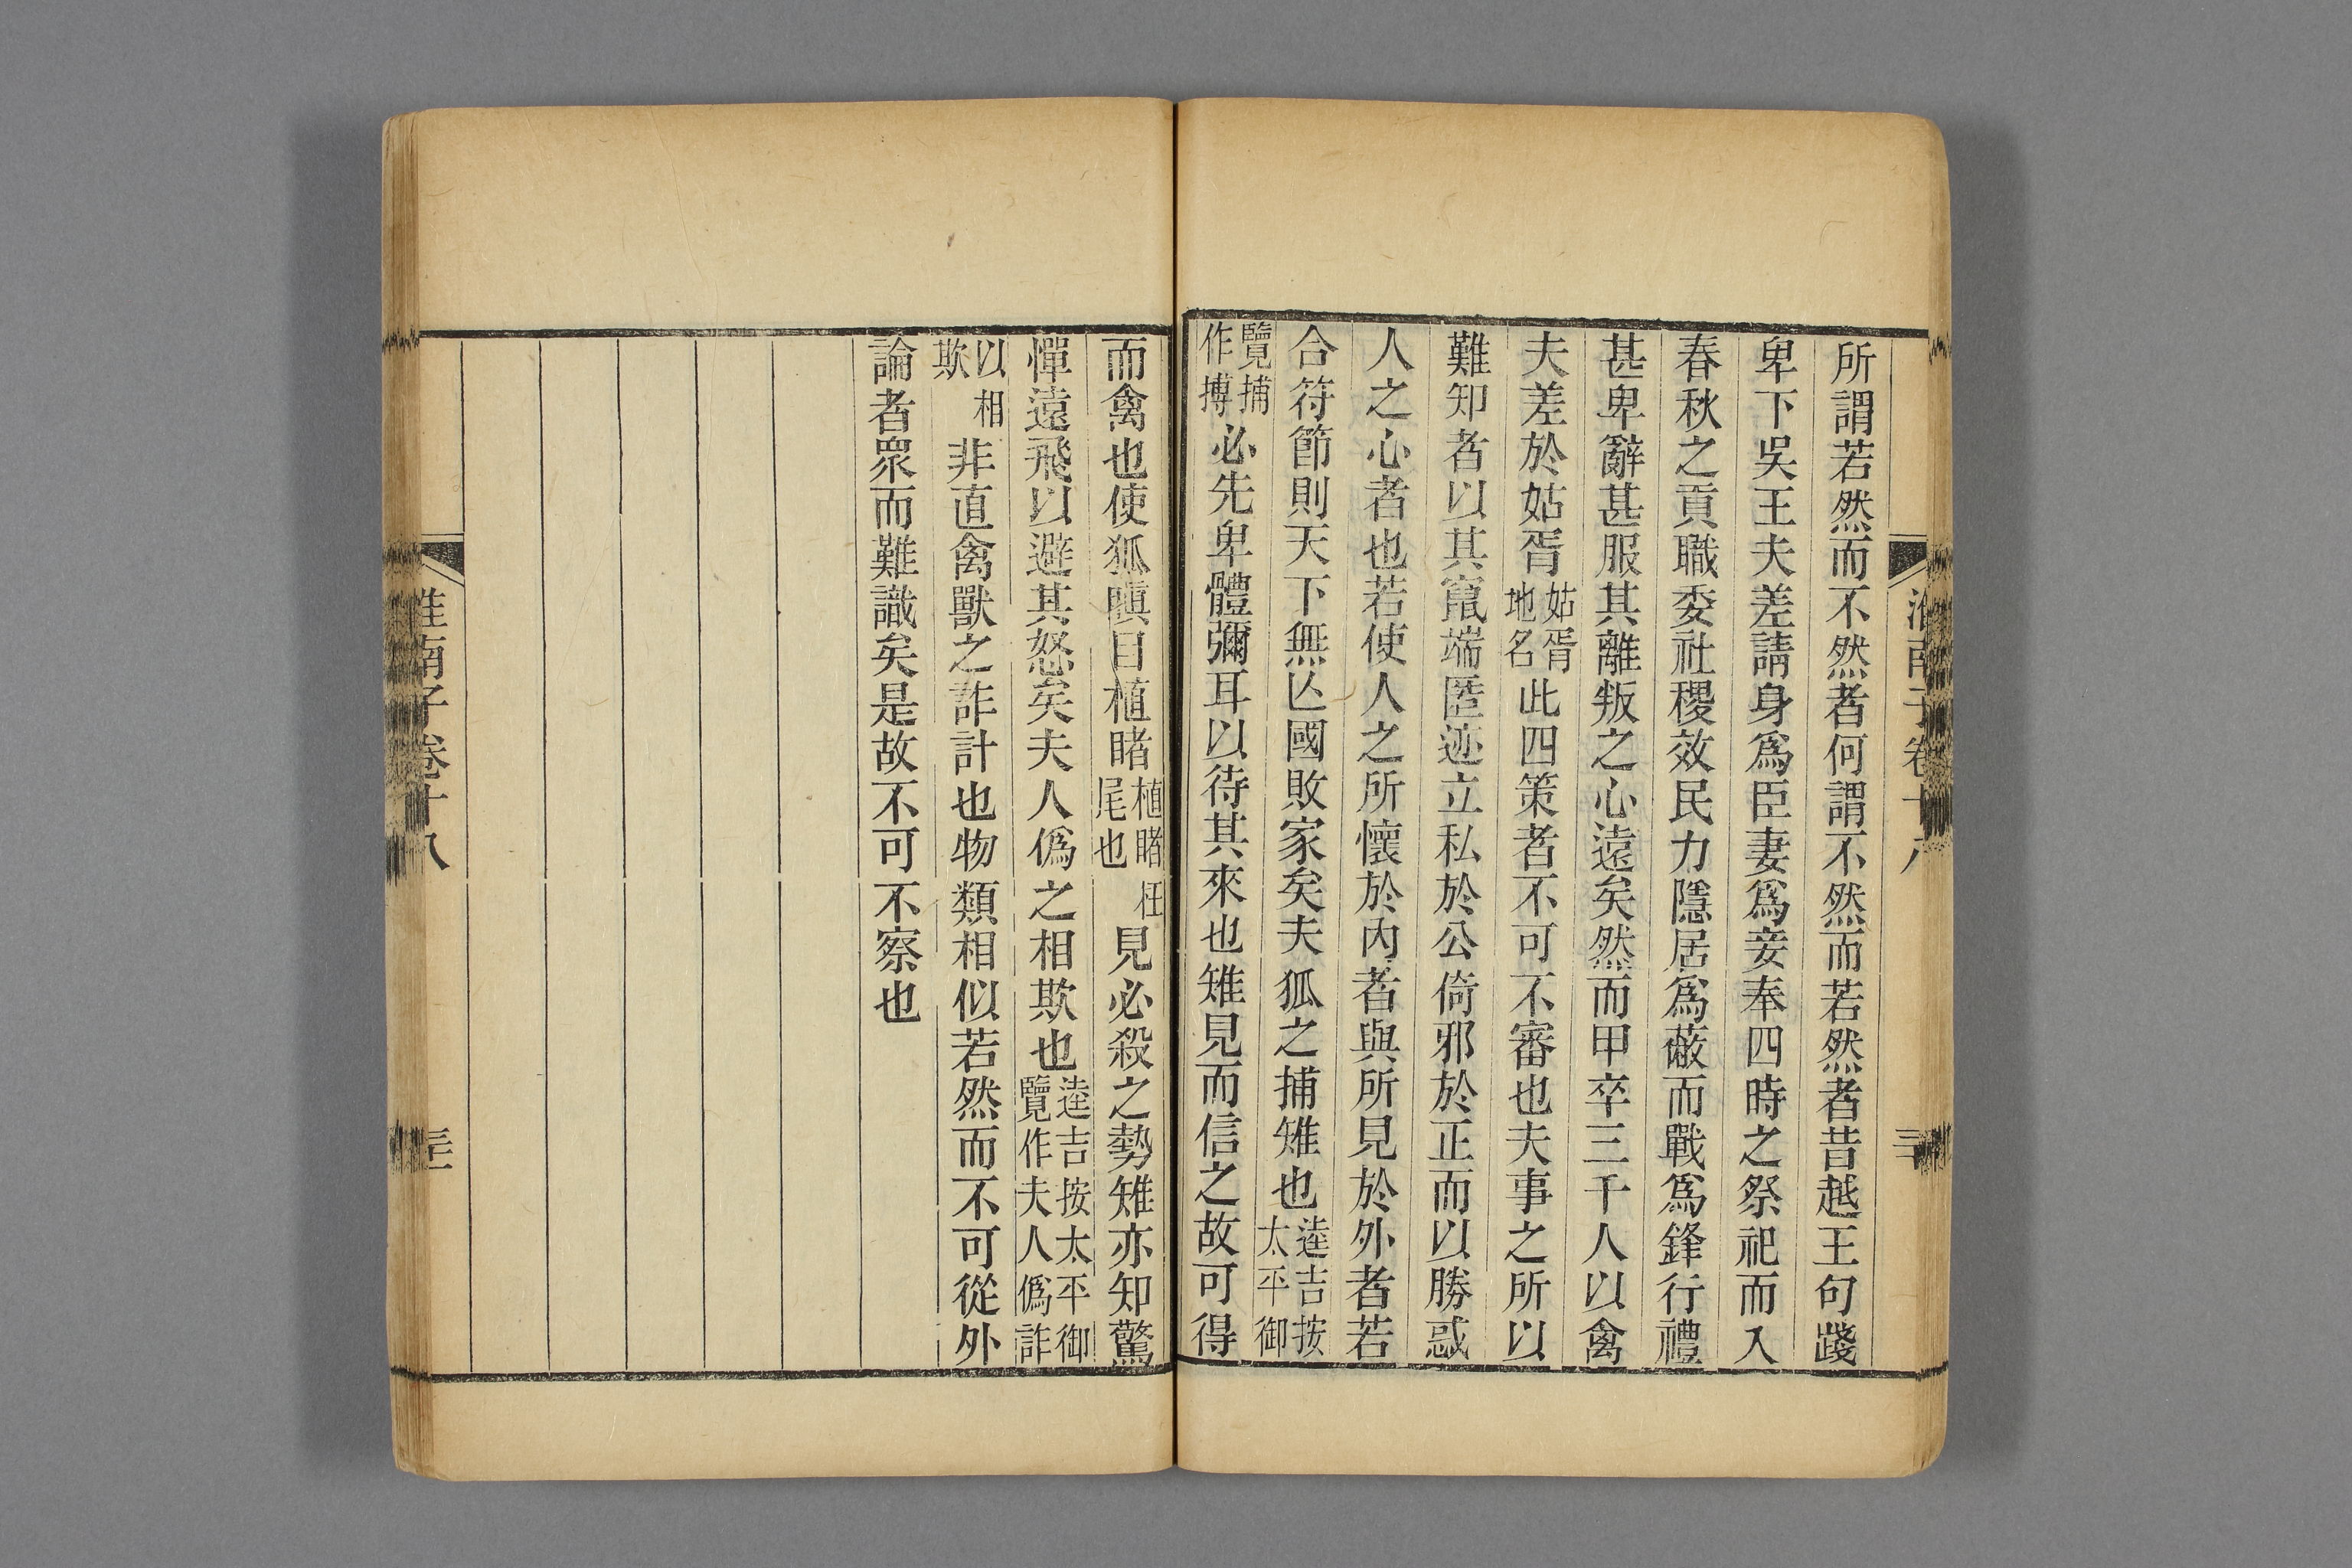 所謂若然而不然者何謂不然而若然者昔越王句踐
卑下吳王夫差請身爲臣妻爲妾奉四時之祭祀而入
春秋之貢職委社稷效民力隱居爲蔽而戰爲鋒行禮
甚卑辭甚服其離叛之心遠矣然而甲卒三千人以禽
夫差於姑胥姑胥地名此四策者不可不審也夫事之所以
難知者以其竄端匿迹立私於公倚邪於正而以勝惑
人之心者也若使人之所懷於內者與所見於外者若
合符節則天下無亾國敗家矣夫狐之捕雉也逵吉按太平御
覽捕作搏必先卑體彌耳以待其來也雉見而信之故可得
淮南子卷十八
而禽也使狐瞋目植睹植睹柱尾也見必殺之勢雉亦知驚
憚遠飛以避其怒矣夫人僞之相欺也逵吉按太平御覽作夫人僞詐
以相欺非直禽獸之詐計也物類相似若然而不可從外
論者眾而難識矣是故不可不察也
淮南子卷十八